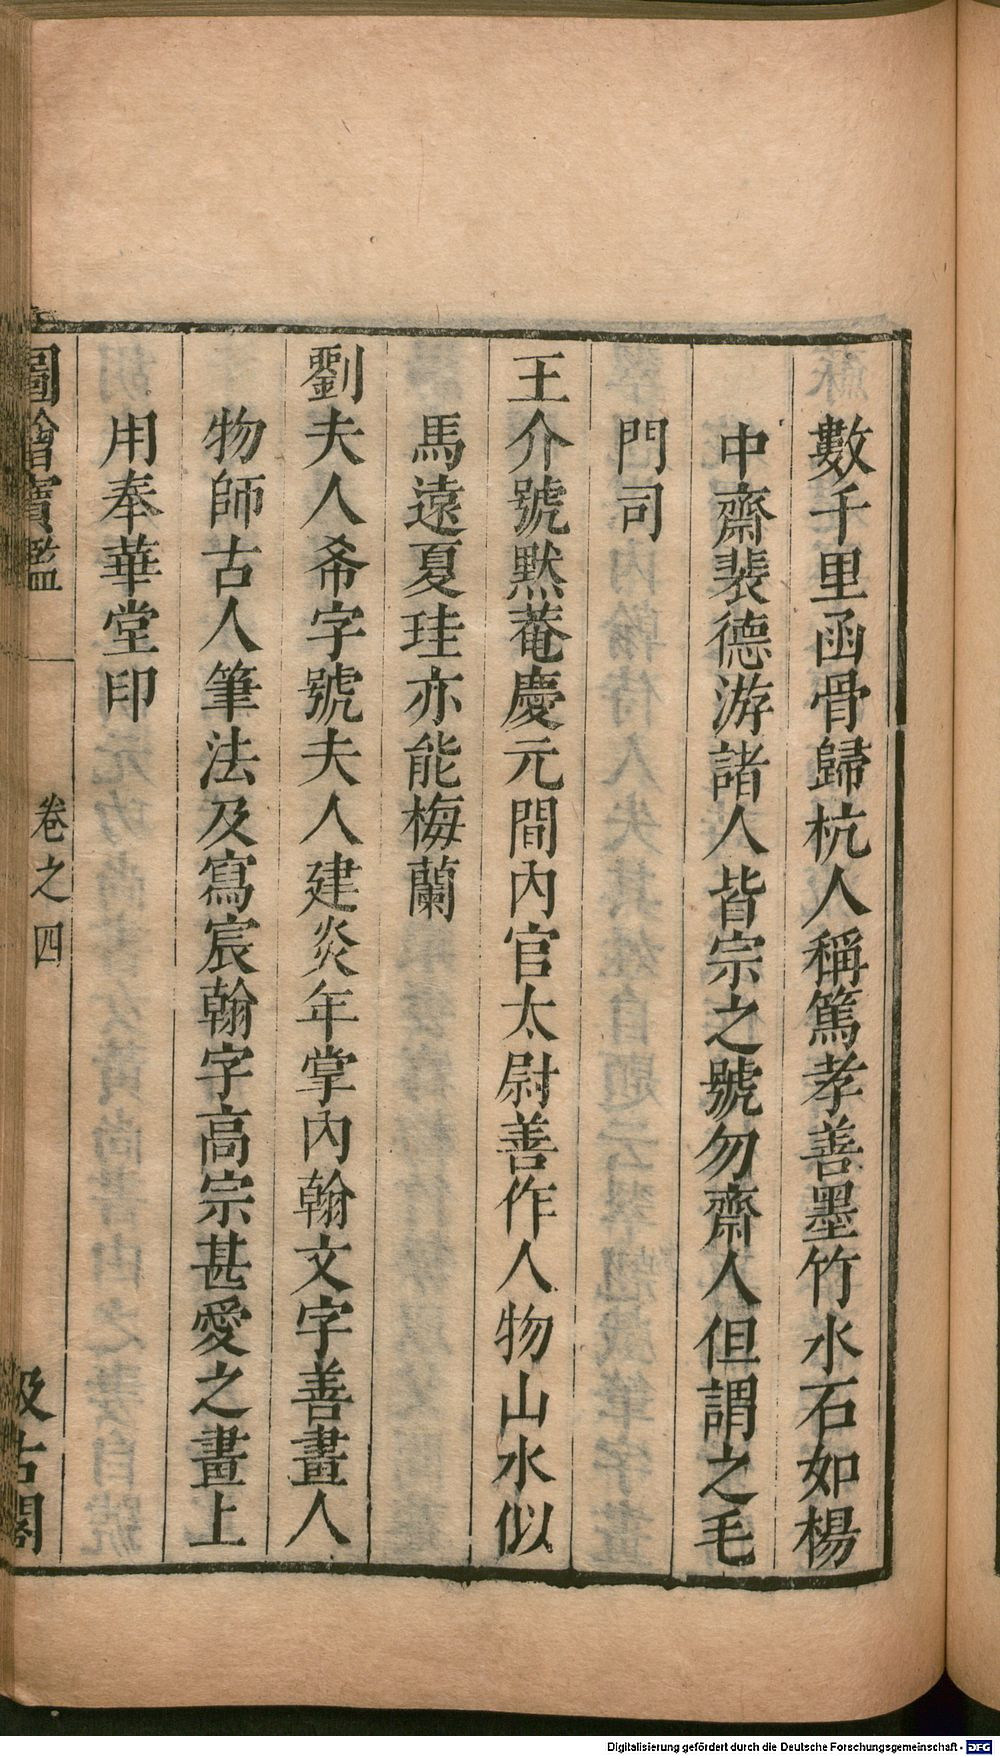 數千里函骨歸杭人稱篤孝善墨竹水石如楊
中齋裴德游諸人皆宗之號勿齋人但謂之毛
門司
王介號黙菴慶元間內官太尉善作人物山水似
馬遠夏珪亦能梅蘭
劉夫人希字號夫人建炎年掌內翰文字善畫人
物師古人筆法及寫宸翰字高宗甚愛之畫上
用奉華堂印
圖繪寶鑑 卷之四 汲古閣
Digitalisierung gefördert durch die Deutsche Forschungsgemeinschaft - DFG